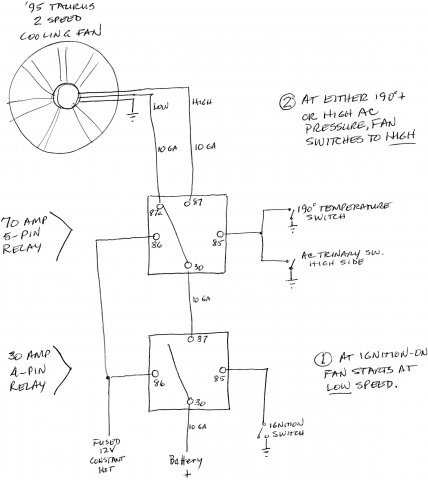 '95 TAURUS
2 SPEED
COOLING FAN
LOW
HIGH
10 GA
10 GA
② AT EITHER 190°+
OR HIGH AC
PRESSURE, FAN
SWITCHES TO HIGH
70 AMP
5-PIN
RELAY
87a
87
86
85
30
190° TEMPERATURE
SWITCH
AC TRINARY SW.
HIGH SIDE
10 GA
30 AMP
4-PIN
RELAY
87
86
85
30
① AT IGNITION-ON
FAN STARTS AT
LOW SPEED.
FUSED
12V
CONSTANT
HOT
10 GA
Battery
+
IGNITION
SWITCH